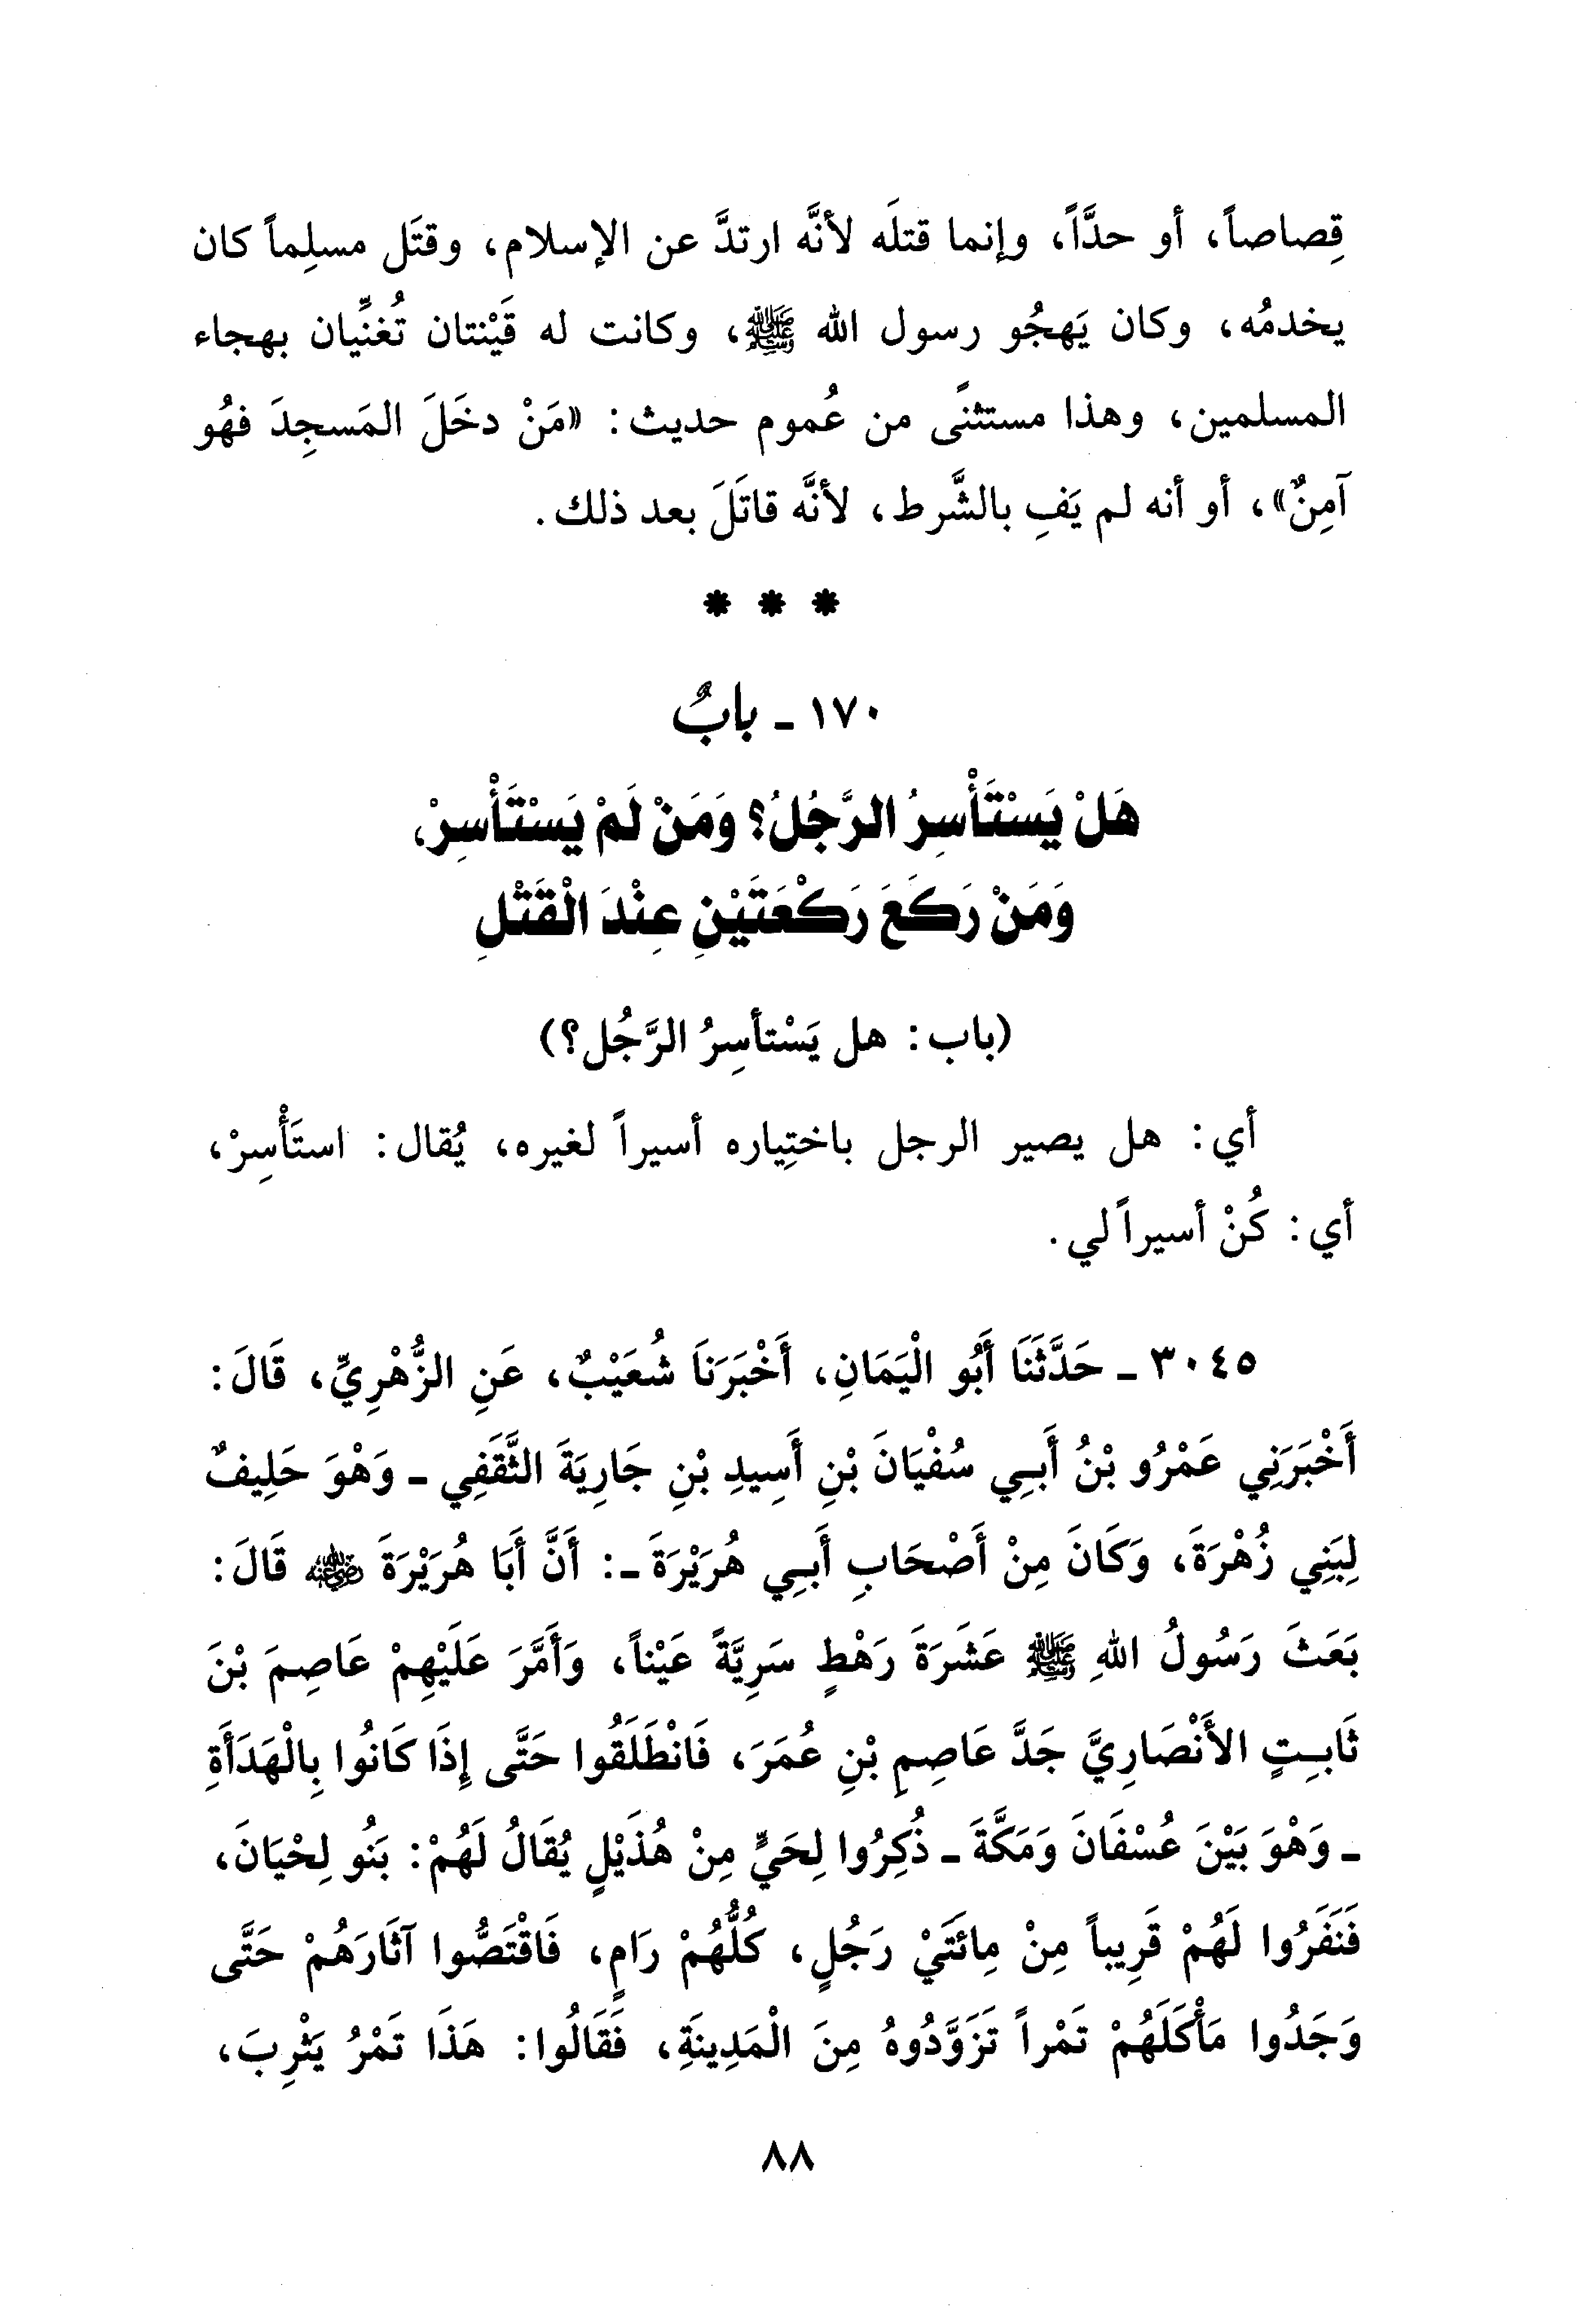 قِصاصاً، أو حدَّاً، وإنما قتلَه لأنَّه ارتدَّ عن الإسلام، وقتَل مسلِماً كان
يخدمُه، وكان يَهجُو رسول الله ﷺ، وكانت له قَيْنتان تُغنِّيان بهجاء
المسلمين، وهذا مستثنًى من عُموم حديث: «مَنْ دخَلَ المَسجِدَ فهُو
آمِنٌ»، أو أنه لم يَفِ بالشَّرط، لأنَّه قاتَلَ بعد ذلك.
* * *
١٧٠ - بابٌ
هَلْ يَسْتَأْسِرُ الرَّجُلُ؟ وَمَنْ لَمْ يَسْتَأْسِرْ،
وَمَنْ رَكَعَ رَكْعَتَيْنِ عِنْدَ الْقَتْلِ
(باب: هل يَسْتأسِرُ الرَّجُل؟)
أي: هل يصير الرجل باختِياره أسيراً لغيره، يُقال: استَأْسِرْ،
أي: كُنْ أسيراً لي.
٣٠٤٥ - حَدَّثَنَا أَبُو الْيَمَانِ، أَخْبَرَنَا شُعَيْبٌ، عَنِ الزُّهْرِيِّ، قَالَ:
أَخْبَرَنِي عَمْرُو بْنُ أَبِي سُفْيَانَ بْنِ أَسِيدِ بْنِ جَارِيَةَ الثَّقَفِي - وَهْوَ حَلِيفٌ
لِبَنِي زُهْرَةَ، وَكَانَ مِنْ أَصْحَابِ أَبِي هُرَيْرَةَ -: أَنَّ أَبَا هُرَيْرَةَ رضي الله عنه قَالَ:
بَعَثَ رَسُولُ اللهِ ﷺ عَشَرَةَ رَهْطٍ سَرِيَّةً عَيْناً، وَأَمَّرَ عَلَيْهِمْ عَاصِمَ بْنَ
ثَابِتٍ الأَنْصَارِيَّ جَدَّ عَاصِمِ بْنِ عُمَرَ، فَانْطَلَقُوا حَتَّى إِذَا كَانُوا بِالْهَدَأَةِ
- وَهْوَ بَيْنَ عُسْفَانَ وَمَكَّةَ - ذُكِرُوا لِحَيٍّ مِنْ هُذَيْلٍ يُقَالُ لَهُمْ: بَنُو لِحْيَانَ،
فَنَفَرُوا لَهُمْ قَرِيباً مِنْ مِائَتَيْ رَجُلٍ، كُلُّهُمْ رَامٍ، فَاقْتَصُّوا آثَارَهُمْ حَتَّى
وَجَدُوا مَأْكَلَهُمْ تَمْراً تَزَوَّدُوهُ مِنَ الْمَدِينَةِ، فَقَالُوا: هَذَا تَمْرُ يَثْرِبَ،
٨٨